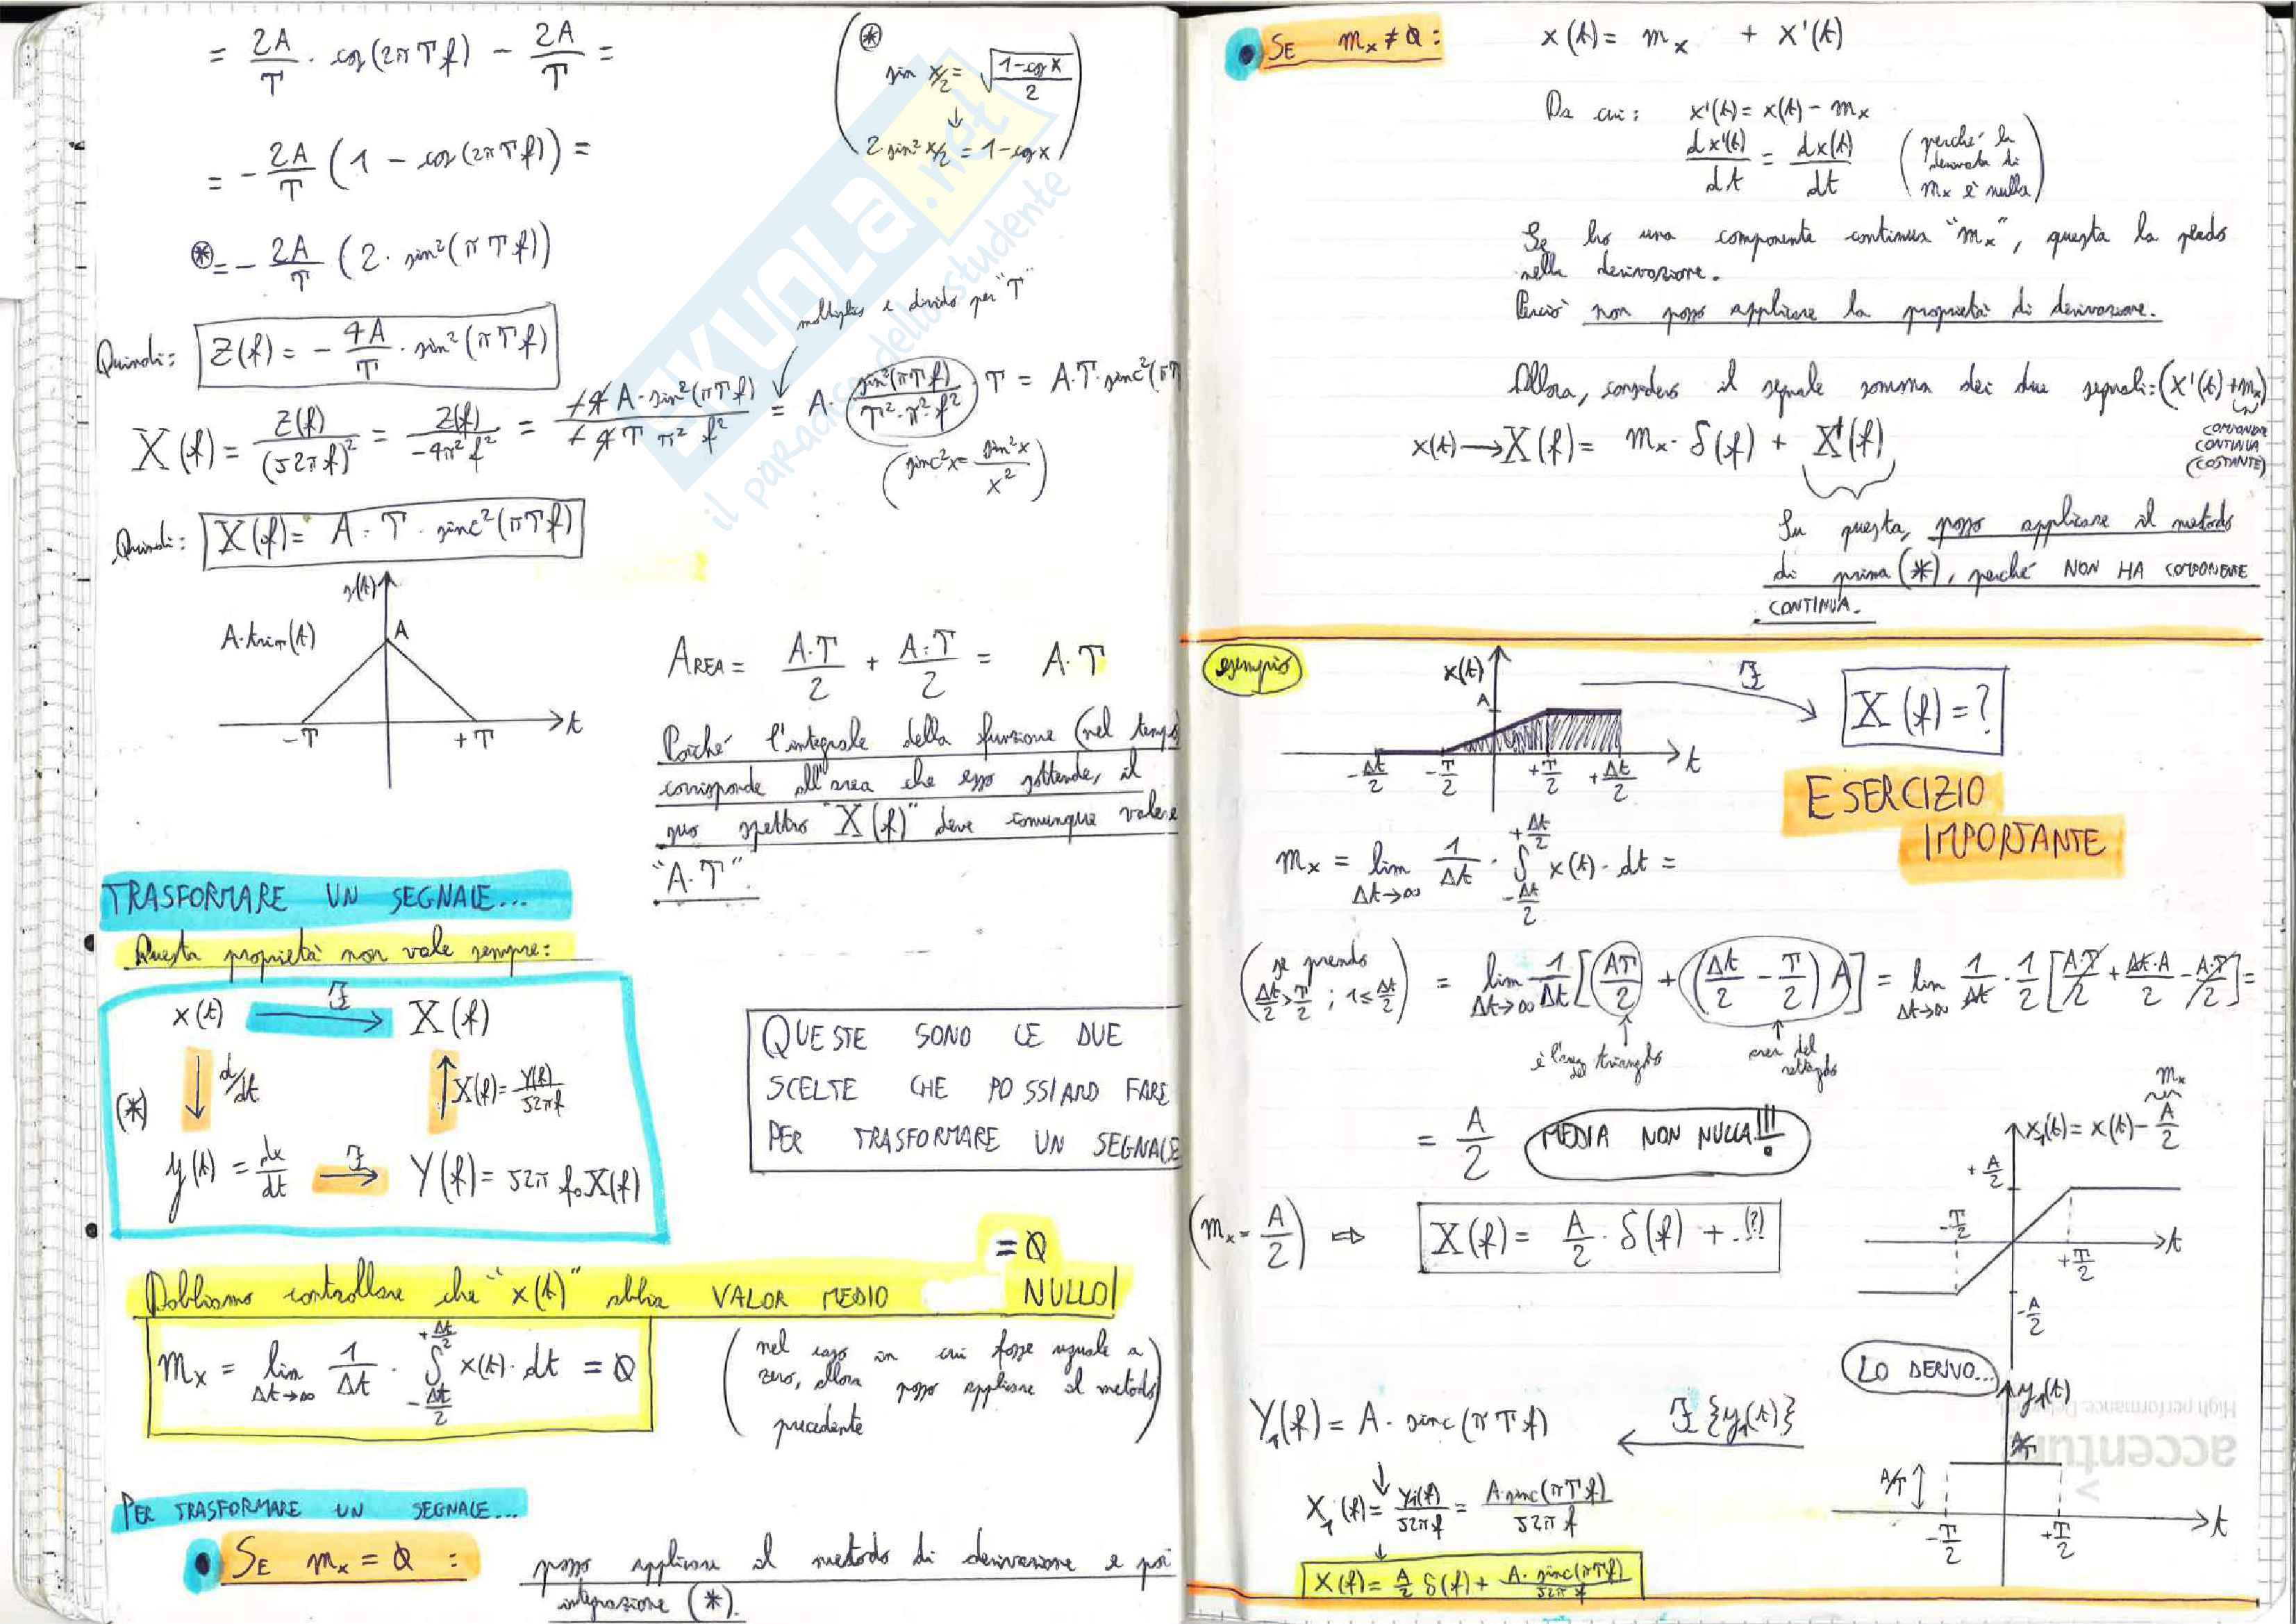 = 2A/T · cos(2πTf) − 2A/T =
(⊛ sin x/2 = √((1−cos x)/2)
↓
2·sin² x/2 = 1−cos x)
= − 2A/T (1 − cos(2πTf)) =
⊛= − 2A/T (2· sin²(πTf))
moltiplico e divido per "T"
Quindi: Z(f) = − 4A/T · sin²(πTf)
X(f) = Z(f)/(j2πf)² = Z(f)/−4π²f² = ≠4A·sin²(πTf)/≠4Tπ²f² = A· sin²(πTf)/T²·π²·f² · T = A·T·sinc²(πT
(sinc²x = sin²x/x²)
Quindi: X(f) = A·T·sinc²(πTf)
A·triT(t)
A
−T
+T
t
AREA = A·T/2 + A·T/2 = A·T
Poiché l'integrale della funzione (nel tempo)
corrisponde all'area che esso sottende, il
suo spettro "X(f)" deve comunque valere
"A·T".
TRASFORMARE UN SEGNALE...
Questa proprietà non vale sempre:
x(t) ℱ→ X(f)
(*) ↓ d/dt
↑ X(f) = Y(f)/j2πf
y(t) = dx/dt ℱ→ Y(f) = j2πf·X(f)
QUESTE SONO LE DUE
SCELTE CHE POSSIAMO FARE
PER TRASFORMARE UN SEGNALE
= 0
Dobbiamo controllare che "x(t)" abbia VALOR MEDIO NULLO!
mx = lim Δt→∞ 1/Δt · ∫ −Δt/2 +Δt/2 x(t)·dt = 0
(nel caso in cui fosse uguale a
zero, allora posso applicare il metodo
precedente)
PER TRASFORMARE UN SEGNALE...
• SE mx = 0 : posso applicare il metodo di derivazione e poi
integrazione (*).
SKUOLA.net
il paradiso dello studente
• SE mx ≠ 0 : x(t) = mx + x'(t)
Da cui: x'(t) = x(t) − mx
dx'(t)/dt = dx(t)/dt (perché la
derivata di
mx è nulla)
Se ho una componente continua "mx", questa la perdo
nella derivazione.
Perciò non posso applicare la proprietà di derivazione.
Allora, considero il segnale somma dei due segnali: (x'(t)+mx)
COMPONENTE
CONTINUA
(COSTANTE)
x(t) → X(f) = mx·δ(f) + X'(f)
Su questa, posso applicare il metodo
di prima (*), perché NON HA COMPONENTE
CONTINUA.
esempio
x(t)
A
−Δt/2
−T/2
+T/2
+Δt/2
t
ℱ
X(f) = ?
ESERCIZIO
IMPORTANTE
mx = lim Δt→∞ 1/Δt · ∫ −Δt/2 +Δt/2 x(t)·dt =
(se prendo
Δt/2 > T/2 ; 1≤ Δt/2)
= lim Δt→∞ 1/Δt [AT/2 + (Δt/2 − T/2) A] = lim Δt→∞ 1/Δt · 1/2 [A·T/2 + Δt·A/2 − A·T/2] =
è l'area del triangolo
area del
rettangolo
= A/2 MEDIA NON NULLA!!!
mx
x₁(t) = x(t) − A/2
+A/2
−T/2
+T/2
−A/2
t
(mx = A/2) ⇨ X(f) = A/2 · δ(f) + (?)
LO DERIVO...
y₁(t)
Y₁(f) = A· sinc(πTf) ← ℱ{y₁(t)}
A/T
A/T
−T/2
+T/2
t
X₁(f) = Y₁(f)/j2πf = A·sinc(πTf)/j2πf
X(f) = A/2 δ(f) + A·sinc(πTf)/j2πf
High performance. Delivered.
accenture